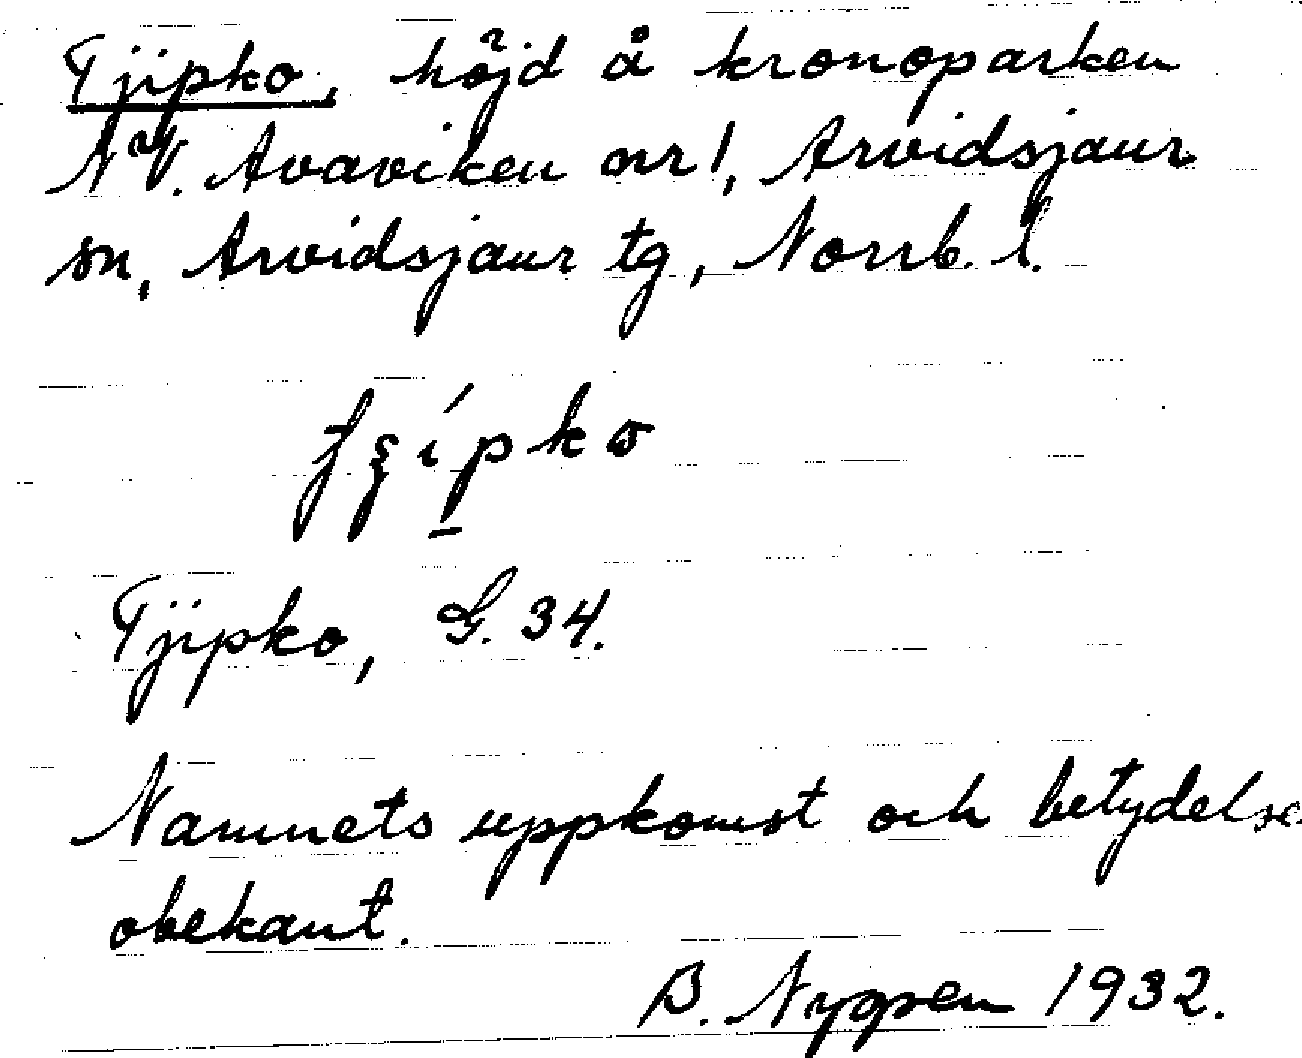 Tjipko, höjd å kronoparken
NV. Avaviken nr 1, Arvidsjaur
sn, Arvidsjaur tg, Norrb. l.
Tjipko, G. 34.
Namnets uppkomst och betydelse
obekant.
B. 1932.